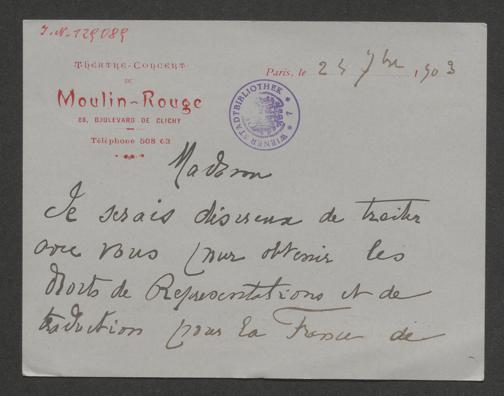 J.N. 129089
THÉATRE-CONCERT
DU
Moulin-Rouge
88, BOULEVARD DE CLICHY
Téléphone 508 63
Paris, le 24 7bre 1903
WIENER STADTBIBLIOTHEK
Madame
Je serais désireux de traiter
avec vous pour obtenir les
droits de Représentations et de
traduction pour la France de